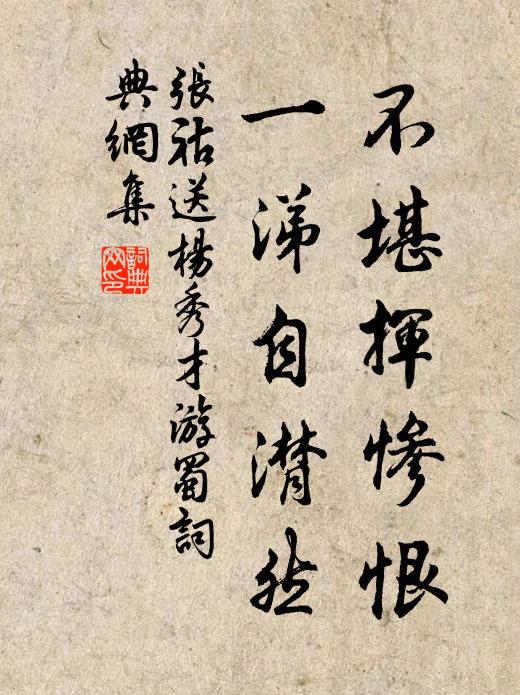 不堪揮慘恨
一涕自潸然
張祜送楊秀才游蜀詞
典網集
詞典
网印